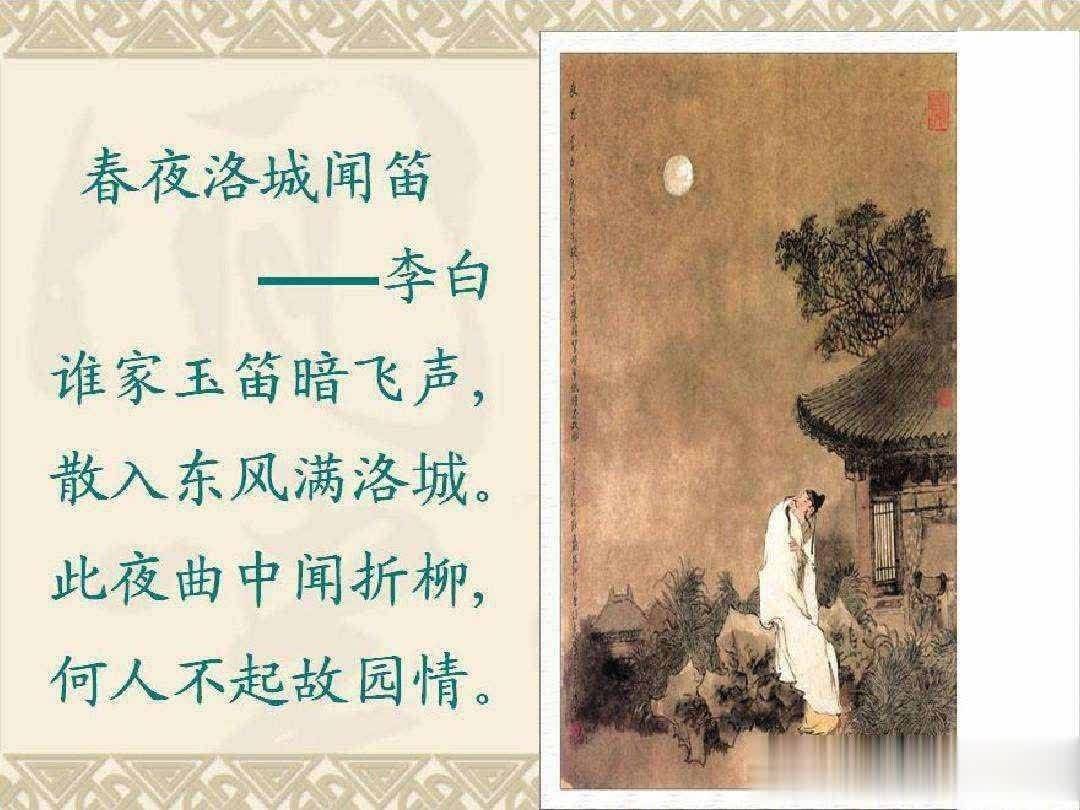 春夜洛城闻笛
——李白
谁家玉笛暗飞声,
散入东风满洛城。
此夜曲中闻折柳,
何人不起故园情。